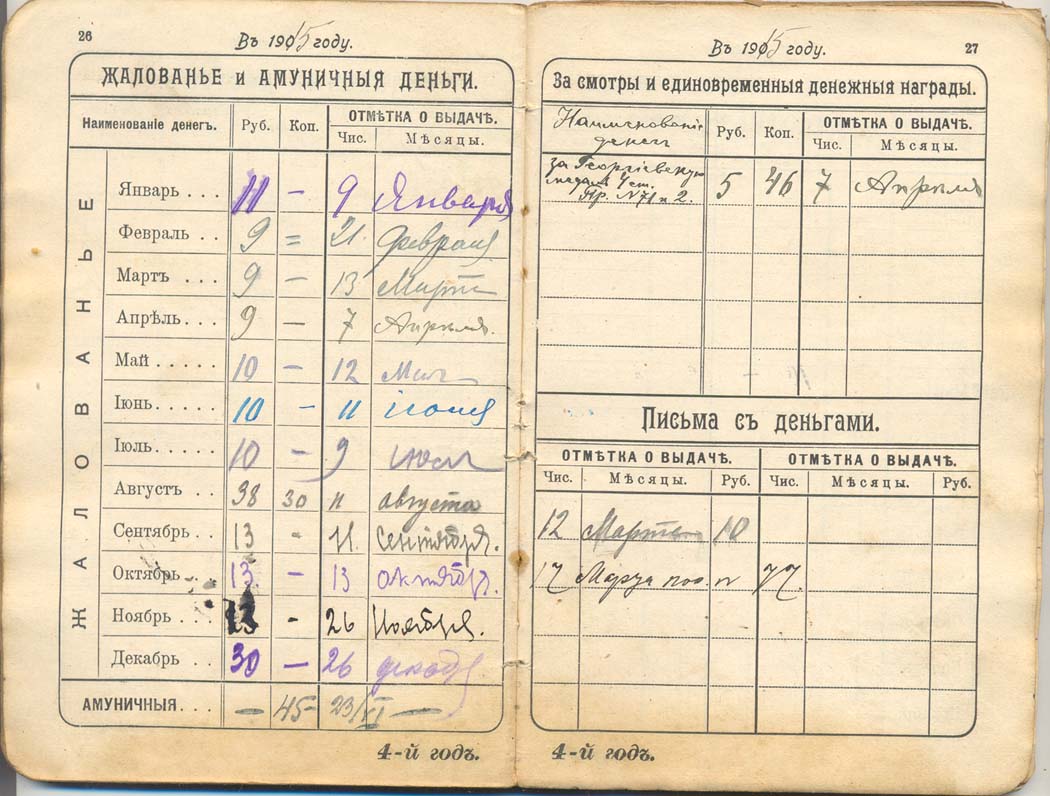 26
Въ 1915 году.
ЖАЛОВАНЬЕ и АМУНИЧНЫЯ ДЕНЬГИ.
Наименованіе денегъ. Руб. Коп. ОТМѢТКА О ВЫДАЧѢ.
Чис. Мѣсяцы.
ЖАЛОВАНЬЕ
Январь ... 11 — 9 Января
Февраль .. 9 = 21. Февраля
Мартъ .... 9 — 13 Марта
Апрѣль.... 9 — 7 Апрѣля.
Май ..... 10 — 12 Мая
Іюнь...... 10 — 11 іюня
Іюль..... 10 — 9 июля
Августъ .. 38 30 11 августа
Сентябрь .. 13 - 11. Сентября.
Октябрь... 13. — 13 октября.
Ноябрь ... 13 - 26 Ноября.
Декабрь .. 30 — 26 декаб
АМУНИЧНЫЯ.... — 45- 23/XI —
4-й годъ.
27
Въ 1915 году.
За смотры и единовременныя денежныя награды.
Наименованіе денег Руб. Коп. ОТМѢТКА О ВЫДАЧѢ.
Чис. Мѣсяцы.
за Георгіевскую
медаль 4 ст. 5 46 7 Апрѣля
Пр. N 71 п 2.
Письма съ деньгами.
ОТМѢТКА О ВЫДАЧѢ. ОТМѢТКА О ВЫДАЧѢ.
Чис. Мѣсяцы. Руб. Чис. Мѣсяцы. Руб.
12 Марта 10
17
4-й годъ.